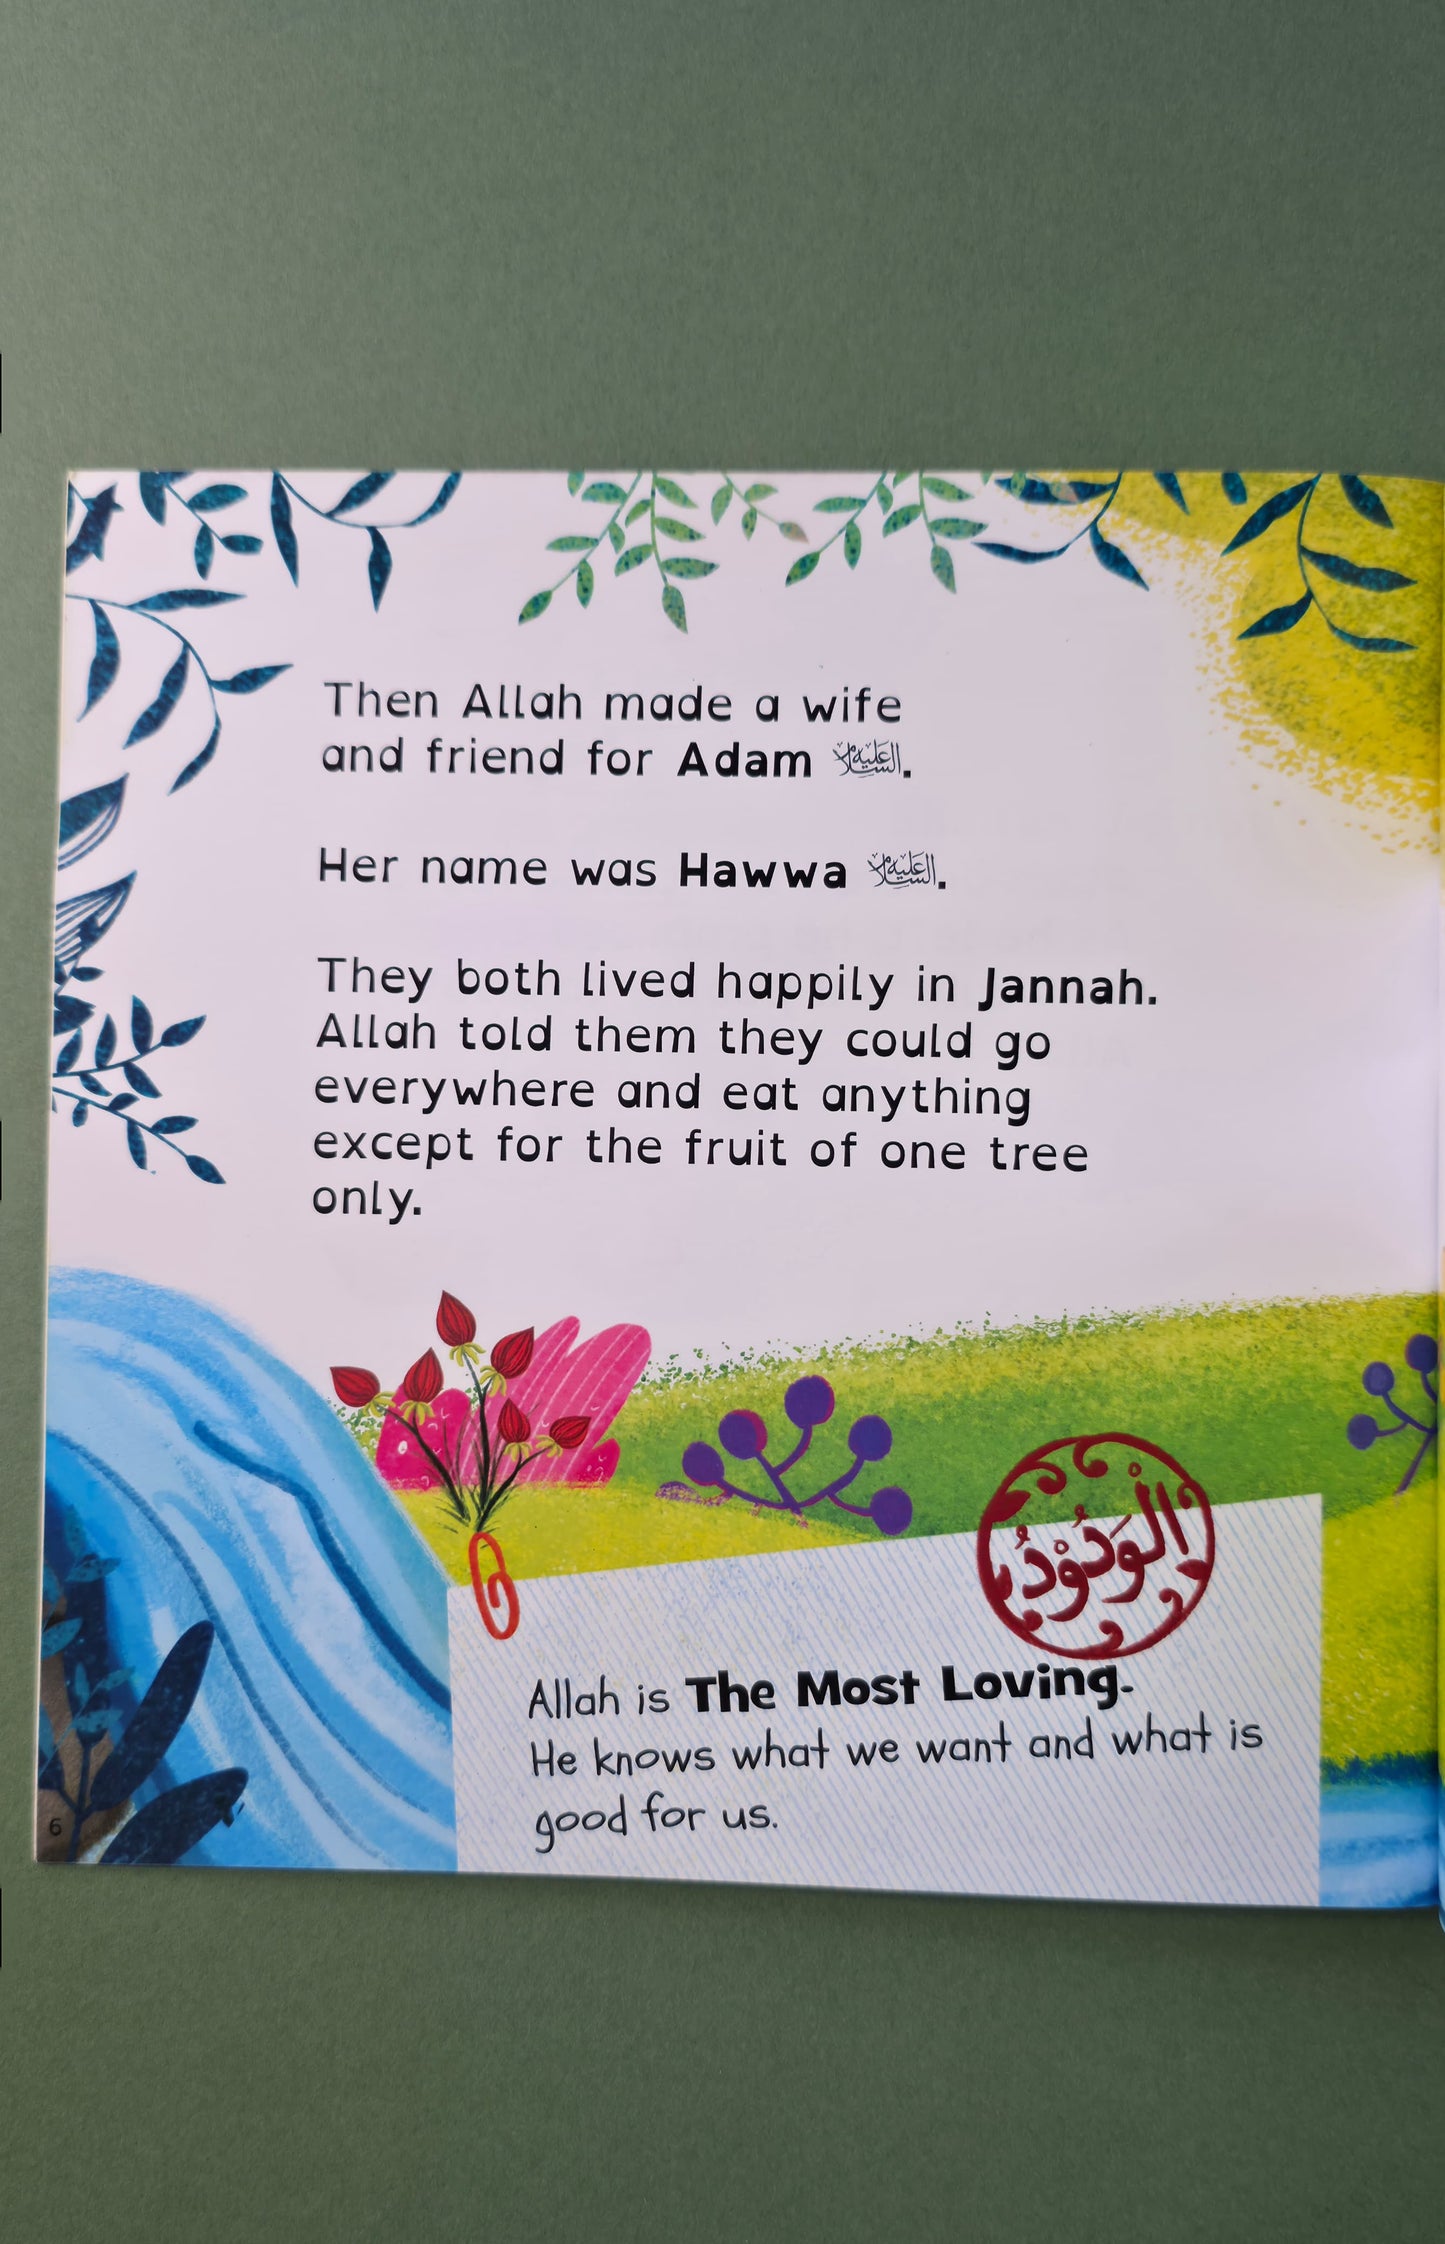 Then Allah made a wife
and friend for Adam عليه السلام.
Her name was Hawwa عليه السلام.
They both lived happily in Jannah.
Allah told them they could go
everywhere and eat anything
except for the fruit of one tree
only.
الْوَدُوْدُ
Allah is The Most Loving.
He knows what we want and what is
good for us.
6